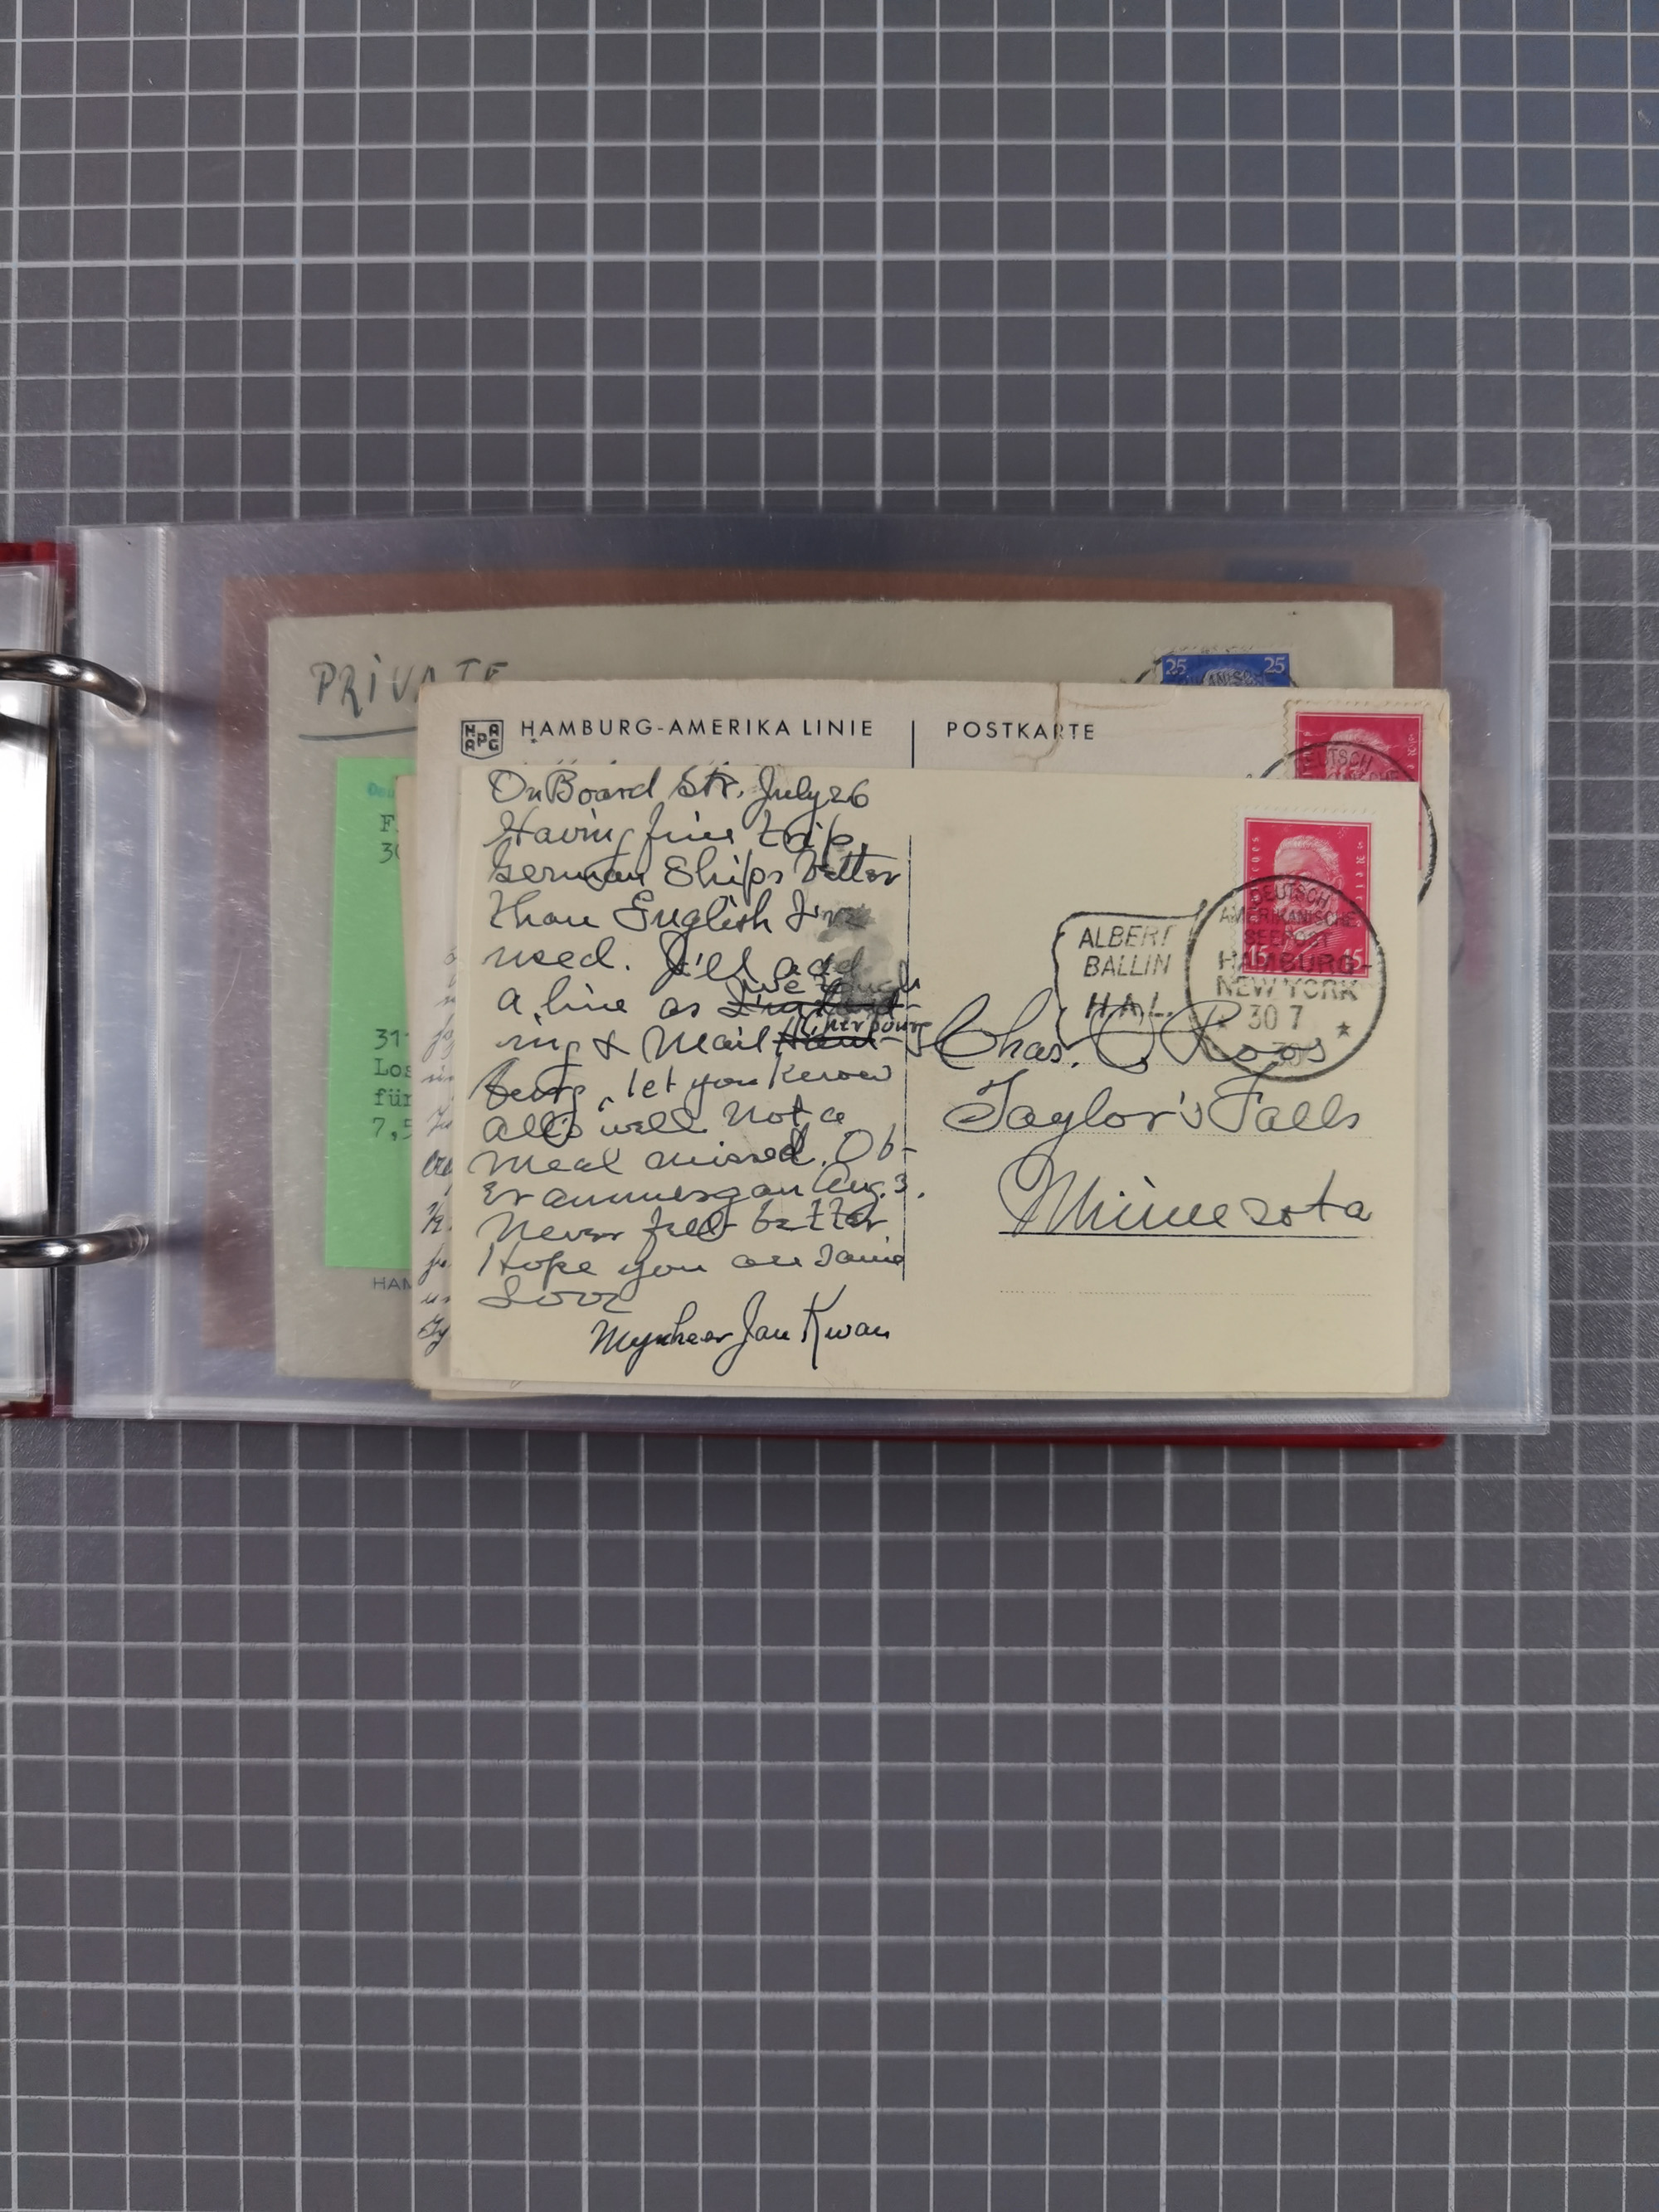 PRIVATE
25 25
HAPAG
HAMBURG-AMERIKA LINIE
POSTKARTE
On Board Str. July 26
Having fine trip,
German Ships better
than English I've
used. I'll add
we touch
a line as
Cherbourg
ing & Mail
burg, let you know
all's well Not a
meal missed. Ob-
Erammergau Aug. 3.
Never felt better
Hope you are same
Love
Mynheer Jan Kwan
15 15
DEUTSCH
AMERIKANISCHE
SEEPOST
HAMBURG-
NEW YORK
30 7
30
ALBERT
BALLIN
H.A.L.
Chas. O Roos
Taylor's Falls
Minnesota
DEUTSCH
F
30
311
Los
für
7,5
HAM